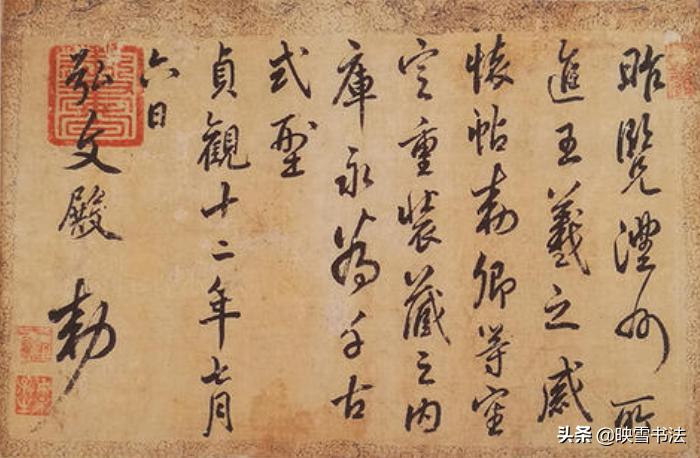 昨覽澧州所
進王羲之感
懐帖勅卿等審
定重裝藏之内
庫永為千古
式型
貞觀十二年七月
六日
弘文殿 勅
头条 @映雪书法